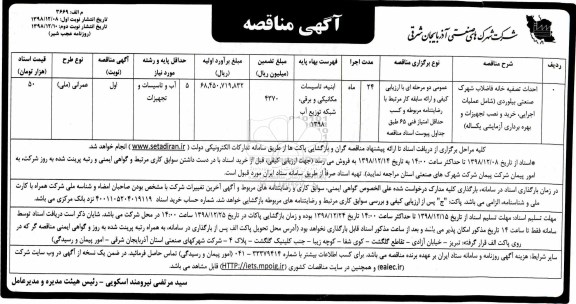 م الف: ۳۶۶۹
تاریخ انتشار نوبت اول: ۱۳۹۸/۱۲/۰۸
تاریخ انتشار نوبت دوم: ۱۳۹۸/۱۲/۱۰
(روزنامه عجب شیر)
آگهی مناقصه
شرکت شهرک های صنعتی آذربایجان شرقی
ردیف
شرح مناقصه
نوع برگزاری مناقصه
مدت اجرا
فهرست بهاء پایه
مبلغ تضمین (میلیون ریال)
مبلغ برآورد اولیه (ریال)
حداقل پایه و رشته مورد نیاز
آگهی مناقصه (نوبت)
نوع طرح
قیمت اسناد (هزار تومان)
احداث تصفیه خانه فاضلاب شهرک صنعتی بیلوردی (شامل عملیات اجرایی، خرید و نصب تجهیزات و بهره برداری آزمایشی یکساله)
عمومی دو مرحله ای با ارزیابی کیفی و ارائه سابقه کار مرتبط با رضایتنامه مربوطه و کسب حداقل امتیاز فنی ۶۵ طبق جداول پیوست اسناد مناقصه
۲۴ ماه
ابنیه، تاسیسات مکانیکی و برقی، شبکه توزیع آب ۱۳۹۸
۴۳۷۰
۶۸,۴۵۰,۷۱۹,۸۳۲
۵ آب و تاسیسات و تجهیزات
اول
عمرانی (ملی)
۵۰
کلیه مراحل برگزاری از دریافت اسناد تا ارائه پیشنهاد مناقصه گران و بازگشایی پاکت ها از طریق سامانه تدارکات الکترونیکی دولت (www.setadiran.ir) انجام خواهد شد.
اسناد از تاریخ ۱۳۹۸/۱۲/۰۸ تا حداکثر ساعت ۱۴:۰۰ به تاریخ ۱۳۹۸/۱۲/۱۴ به فروش می رسد (جهت ارزیابی کیفی، قبل از خرید اسناد با در دست داشتن سوابق کاری مرتبط و گواهی ایمنی و رتبه پذیرش شده به روز شرکت، به امور پیمان شرکت پیمان شرکت شهرک های صنعتی استان مراجعه نمایند) تهیه اسناد صرفاً از طریق سامانه ستاد ایران مورد قبول است.
در زمان بارگذاری اسناد در سامانه، بارگذاری کلیه مدارک درخواست شده علی الخصوص گواهی ایمنی، سوابق کاری و رضایتنامه های مربوطه و آگهی آخرین تغییرات شرکت با مشخص بودن صاحبان امضاء و شناسه ملی شرکت همراه با کارت ملی و شناسنامه، الزامی می باشد. پاکت: "ج" پس از ارزیابی کیفی و بررسی سوابق کاری مرتبط و رضایتنامه های مربوطه بازگشایی خواهد شد. شماره حساب خرید اسناد ۴۰۰۱۱۰۵۲۰۴۰۱۹۱۱۹ نزد بانک مرکزی می باشد.
مهلت تسلیم اسناد: مهلت تسلیم اسناد از تاریخ ۱۳۹۸/۱۲/۱۵ تا حداکثر ساعت ۱۴:۰۰ تاریخ ۱۳۹۸/۱۲/۲۴ بوده و زمان بازگشایی پاکات در تاریخ ۱۳۹۸/۱۲/۲۵ ساعت ۱۴:۰۰ در محل شرکت می باشد. شایان ذکر است دریافت اسناد توسط سامانه فقط تا ساعت ۱۴ تاریخ مذکور امکان پذیر می باشد و بعد از ساعت مذکور اسناد قابل بارگذاری نخواهد بود (آدرس محل تحویل پاکت الف پس از بارگذاری در سامانه، به همراه رتبه پذیرش شده به روز و گواهی ایمنی مناقصه گر که در روی پاکت الف قرار گرفته: تبریز - خیابان آزادی - تقاطع گلگشت - کوی شفا - کوچه زیبا - جنب کلینیک گلگشت - پلاک ۴ - شرکت شهرکهای صنعتی استان آذربایجان شرقی - امور پیمان و رسیدگی)
سایر شرایط: هزینه آگهی روزنامه و سامانه ستاد ایران بر عهده برنده مناقصه می باشد. برای کسب اطلاعات بیشتر با شماره ۳۳۳۷۹۴۱۴ - ۰۴۱ (امور پیمان و رسیدگی) تماس حاصل فرمائید. در ضمن یک نسخه از آگهی در وب سایت شرکت (eaiec.ir) و همچنین در سایت مناقصات کشوری (HTTP://iets.mporg.ir) قابل مشاهده می باشد.
سید مرتضی نیرومند اسکویی - رئیس هیئت مدیره و مدیرعامل